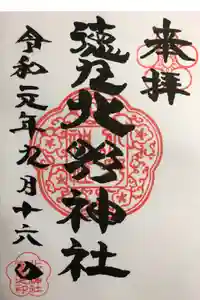 奉拝
徳丸北野神社
令和元年九月十六日